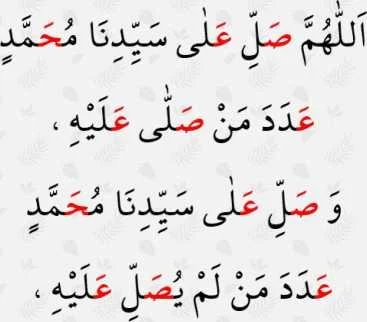 اَللّٰهُمَّ صَلِّ عَلٰى سَيِّدِنَا مُحَمَّدٍ
عَدَدَ مَنْ صَلّٰى عَلَيْهِ ،
وَ صَلِّ عَلٰى سَيِّدِنَا مُحَمَّدٍ
عَدَدَ مَنْ لَمْ يُصَلِّ عَلَيْهِ ،